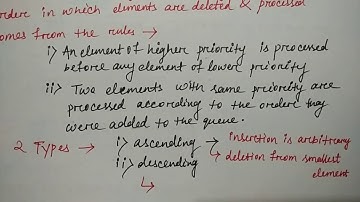 ordere in which elements are deleted & processed
comes from the rules →
i) An element of higher priority is processed
before any element of lower priority
ii) Two elements with same priority are
processed according to the order they
were added to the queue.
2 Types → i) ascending → insertion is arbitrary
ii) descending deletion from smallest
element